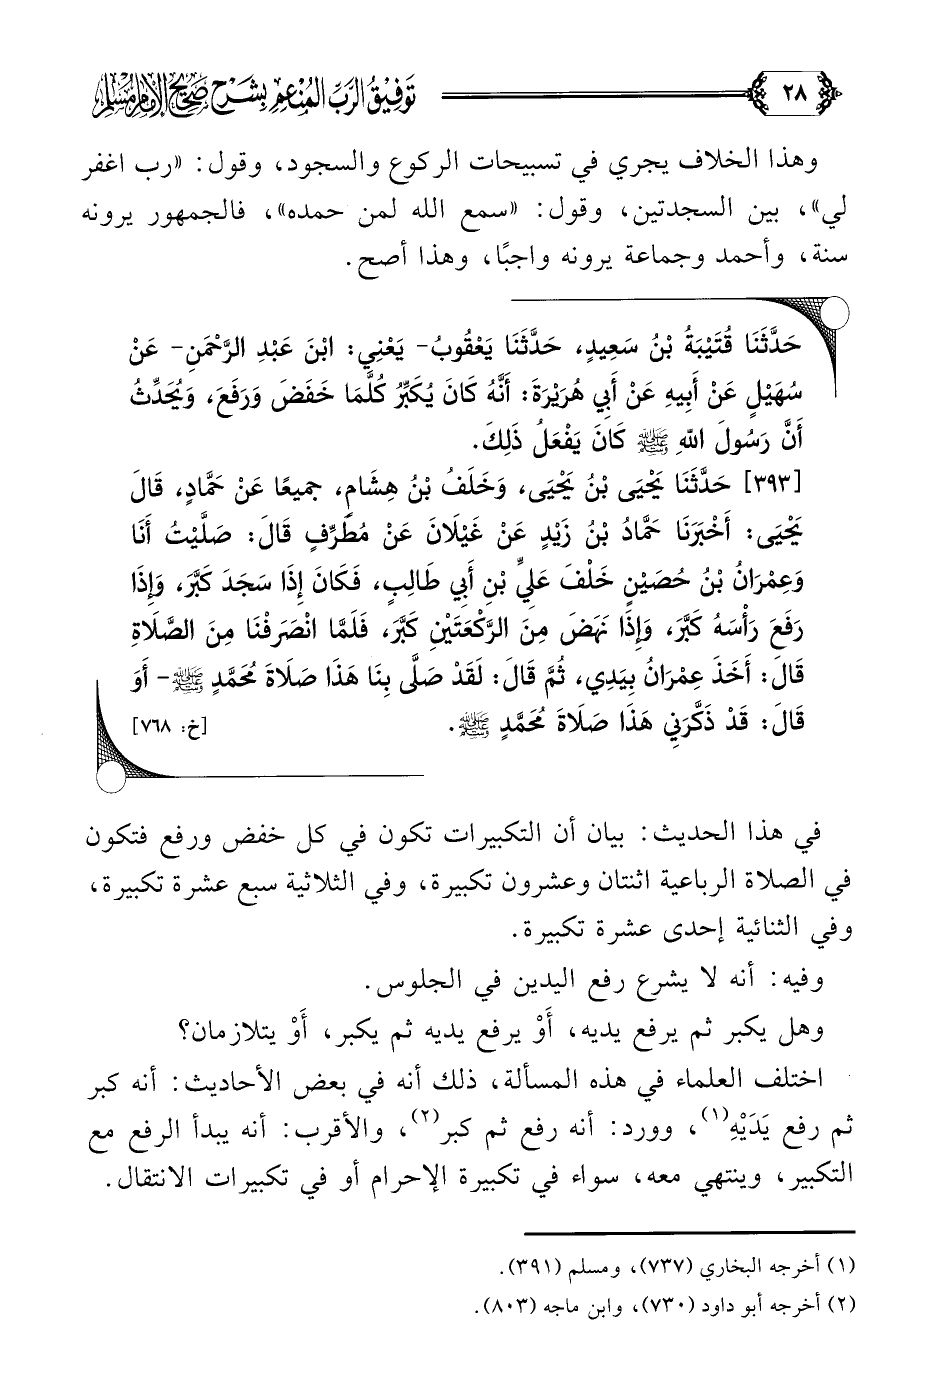 ٢٨ توفيق الرب المنعم بشرح صحيح الإمام مسلم
وهذا الخلاف يجري في تسبيحات الركوع والسجود، وقول: «رب اغفر
لي»، بين السجدتين، وقول: «سمع الله لمن حمده»، فالجمهور يرونه
سنة، وأحمد وجماعة يرونه واجبًا، وهذا أصح.
حَدَّثَنَا قُتَيْبَةُ بْنُ سَعِيدٍ، حَدَّثَنَا يَعْقُوبُ- يَعْنِي: ابْنَ عَبْدِ الرَّحْمَنِ- عَنْ
سُهَيْلٍ عَنْ أَبِيهِ عَنْ أَبِي هُرَيْرَةَ: أَنَّهُ كَانَ يُكَبِّرُ كُلَّمَا خَفَضَ وَرَفَعَ، وَيُحَدِّثُ
أَنَّ رَسُولَ اللهِ ﷺ كَانَ يَفْعَلُ ذَلِكَ.
[٣٩٣] حَدَّثَنَا يَحْيَى بْنُ يَحْيَى، وَخَلَفُ بْنُ هِشَامٍ، جميعًا عَنْ حَمَّادٍ، قَالَ
يَحْيَى: أَخْبَرَنَا حَمَّادُ بْنُ زَيْدٍ عَنْ غَيْلَانَ عَنْ مُطَرِّفٍ قَالَ: صَلَّيْتُ أَنَا
وَعِمْرَانُ بْنُ حُصَيْنٍ خَلْفَ عَلِيِّ بْنِ أَبِي طَالِبٍ، فَكَانَ إِذَا سَجَدَ كَبَّرَ، وَإِذَا
رَفَعَ رَأْسَهُ كَبَّرَ، وَإِذَا نَهَضَ مِنَ الرَّكْعَتَيْنِ كَبَّرَ، فَلَمَّا انْصَرَفْنَا مِنَ الصَّلَاةِ
قَالَ: أَخَذَ عِمْرَانُ بِيَدِي، ثُمَّ قَالَ: لَقَدْ صَلَّى بِنَا هَذَا صَلَاةَ مُحَمَّدٍ ﷺ- أَوَ
قَالَ: قَدْ ذَكَّرَنِي هَذَا صَلَاةَ مُحَمَّدٍ ﷺ. [خ: ٧٦٨]
في هذا الحديث: بيان أن التكبيرات تكون في كل خفض ورفع فتكون
في الصلاة الرباعية اثنتان وعشرون تكبيرة، وفي الثلاثية سبع عشرة تكبيرة،
وفي الثنائية إحدى عشرة تكبيرة.
وفيه: أنه لا يشرع رفع اليدين في الجلوس.
وهل يكبر ثم يرفع يديه، أَوْ يرفع يديه ثم يكبر، أَوْ يتلازمان؟
اختلف العلماء في هذه المسألة، ذلك أنه في بعض الأحاديث: أنه كبر
ثم رفع يَدَيْهِ(١)، وورد: أنه رفع ثم كبر(٢)، والأقرب: أنه يبدأ الرفع مع
التكبير، وينتهي معه، سواء في تكبيرة الإحرام أو في تكبيرات الانتقال.
(١) أخرجه البخاري (٧٣٧)، ومسلم (٣٩١).
(٢) أخرجه أبو داود (٧٣٠)، وابن ماجه (٨٠٣).